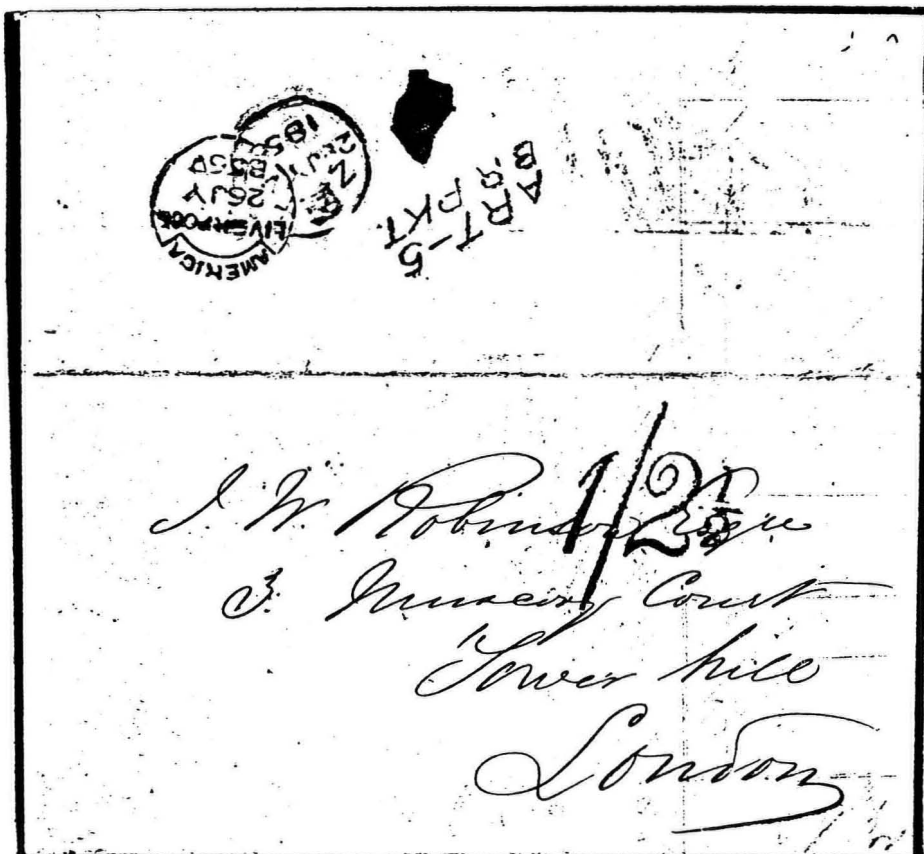 AMERICA
LIVERPOOL
26 JY
185
BR. PKT.
1/2½
J. W. Robinson Esqre
3. Muscovy Court
Tower hill
London